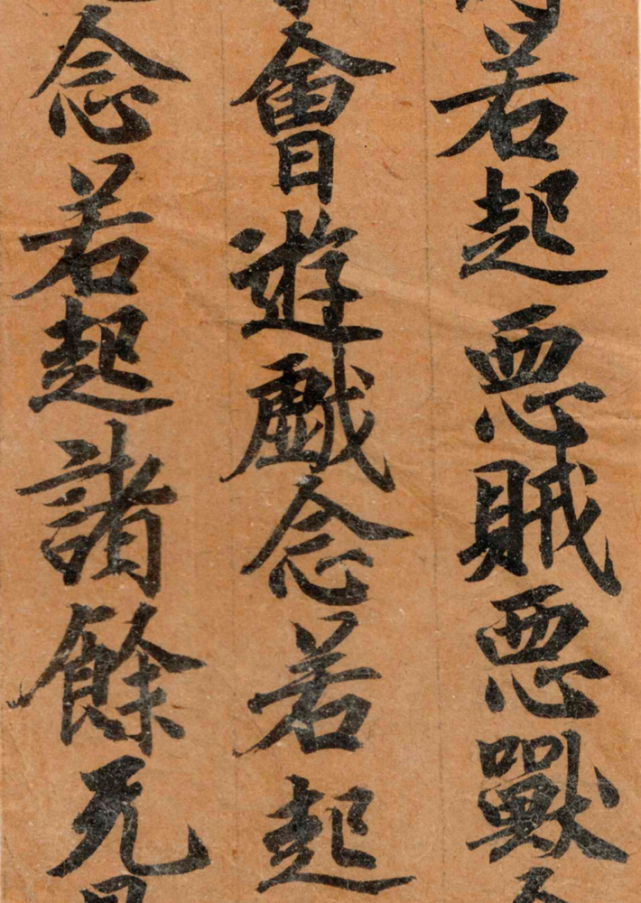 若起悪賊悪獸
會遊戯念若起
念若起諸餘无